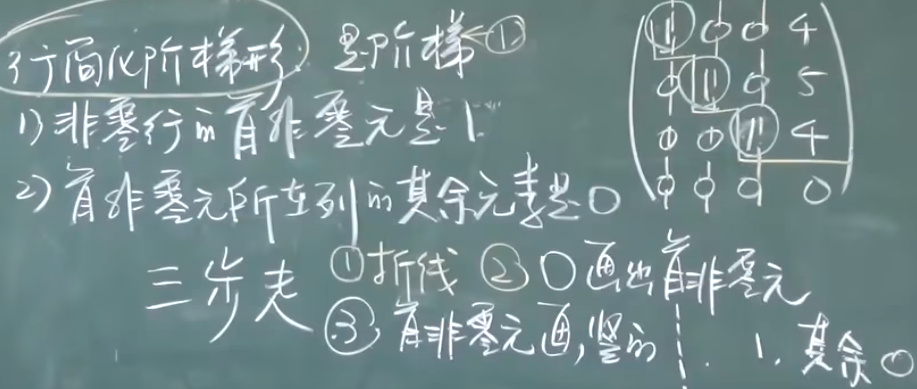 行简化阶梯形: 是阶梯←①
1) 非零行的首非零元是"1"
2) 首非零元所在列的其余元素是0
三步走 ①折线 ②○画出首非零元
③首非零元画竖的 1, 其余0
1 0 0 4
0 1 0 5
0 0 1 4
0 0 0 0